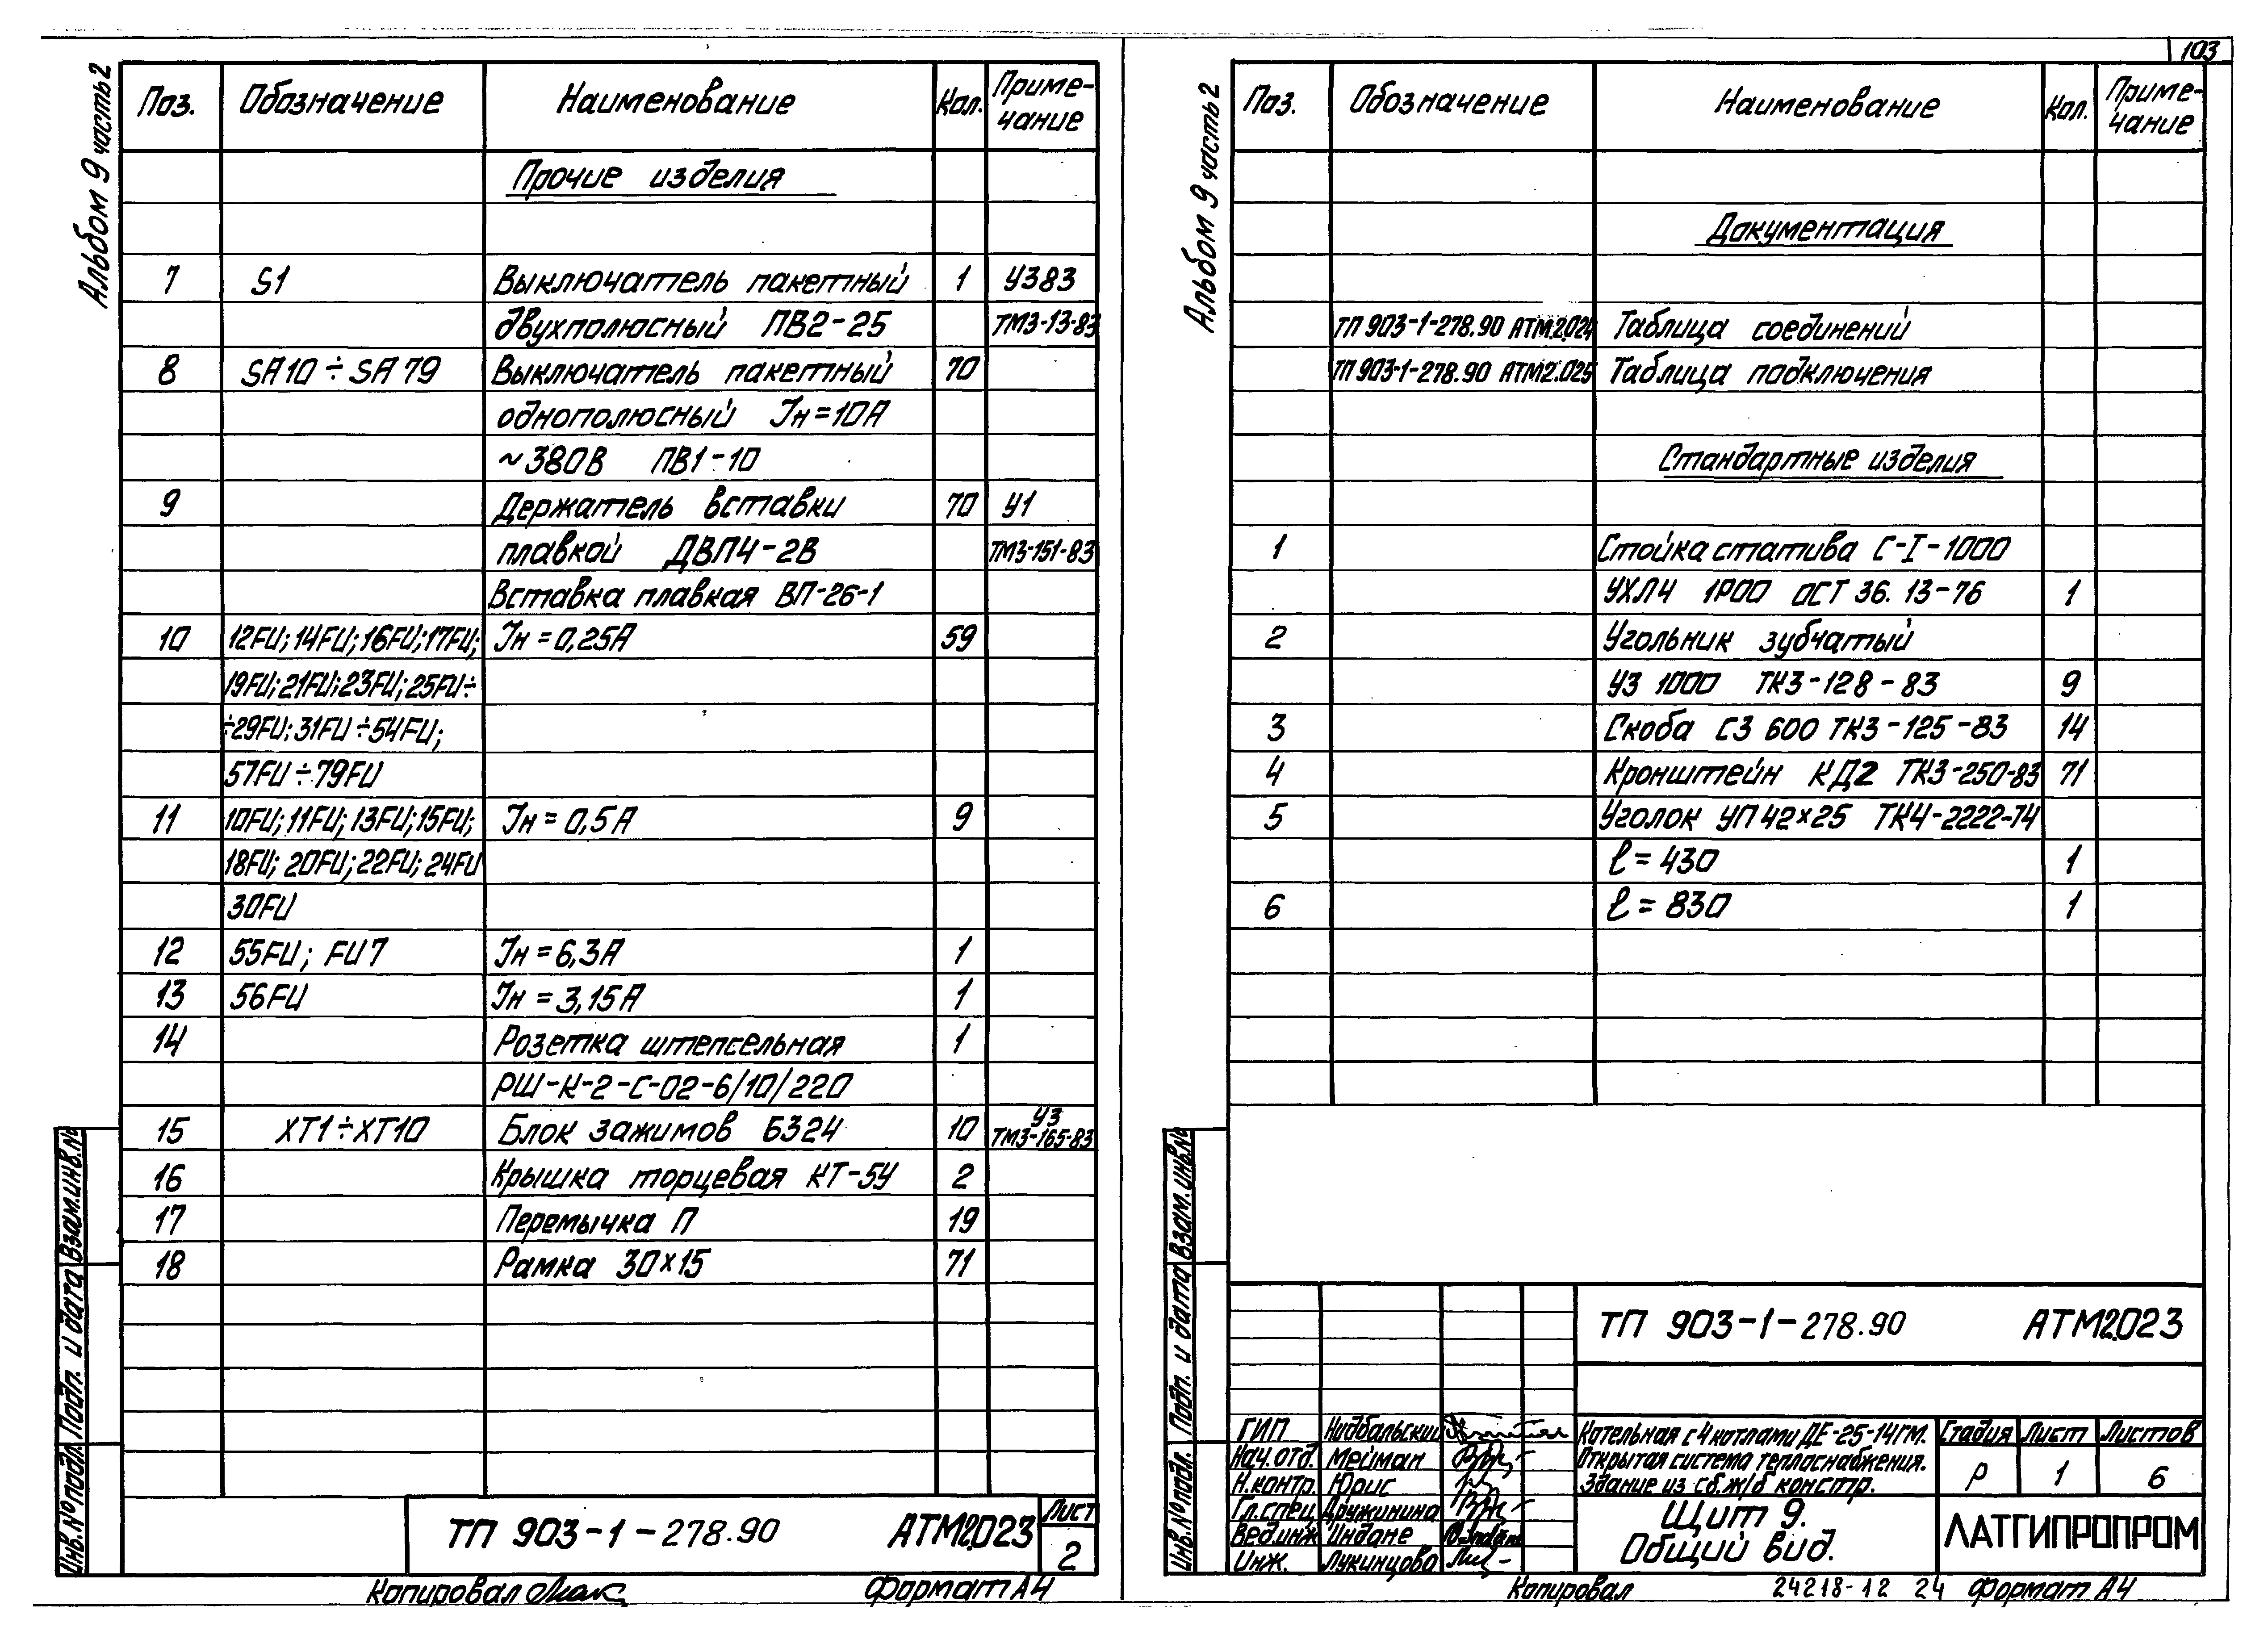 103
Альбом 9 часть 2
Поз. Обозначение Наименование Кол. Приме-
чание
Прочие изделия
7 S1 Выключатель пакетный 1 У383
двухполюсный ПВ2-25 ТМ3-13-83
8 SA10÷SA79 Выключатель пакетный 70
однополюсный Iн=10А
~380В ПВ1-10
9 Держатель вставки 70 У1
плавкой ДВП4-2В ТМ3-151-83
Вставка плавкая ВП-26-1
10 12FU; 14FU; 16FU; 17FU; Iн=0,25А 59
19FU; 21FU; 23FU; 25FU÷
÷29FU; 31FU÷54FU;
57FU÷79FU
11 10FU; 11FU; 13FU; 15FU; Iн=0,5А 9
18FU; 20FU; 22FU; 24FU
30FU
12 55FU; FU7 Iн=6,3А 1
13 56FU Iн=3,15А 1
14 Розетка штепсельная 1
РШ-К-2-С-02-6/10/220
15 XT1÷XT10 Блок зажимов Б324 10 У3
ТМ3-165-83
16 Крышка торцевая КТ-5У 2
17 Перемычка П 19
18 Рамка 30×15 71
Взам.инв.№
Подп. и дата
Инв.№подл.
ТП 903-1-278.90 АТМ2.023 Лист
2
Копировал Формат А4
Альбом 9 часть 2
Поз. Обозначение Наименование Кол. Приме-
чание
Документация
ТП 903-1-278.90 АТМ2.024 Таблица соединений
ТП 903-1-278.90 АТМ2.025 Таблица подключения
Стандартные изделия
1 Стойка статива С-I-1000
УХЛ4 IP00 ОСТ 36.13-76 1
2 Угольник зубчатый
УЗ 1000 ТК3-128-83 9
3 Скоба СЗ 600 ТК3-125-83 14
4 Кронштейн КД2 ТК3-250-83 71
5 Уголок УП 42×25 ТК4-2222-74
ℓ=430 1
6 ℓ=830 1
Взам.инв.№
Подп. и дата
Инв.№подл.
ТП 903-1-278.90 АТМ2.023
ГИП Нидбальский
Нач.отд. Мейман
Н.контр. Юрис
Гл.спец. Дружинина
Вед.инж. Индане
Инж. Лукинцова
Котельная с 4 котлами ДЕ-25-14ГМ.
Открытая система теплоснабжения.
Здание из сб.ж/б констр.
Стадия Лист Листов
Р 1 6
Щит 9.
Общий вид.
ЛАТГИПРОПРОМ
Копировал 24218-12 24 Формат А4